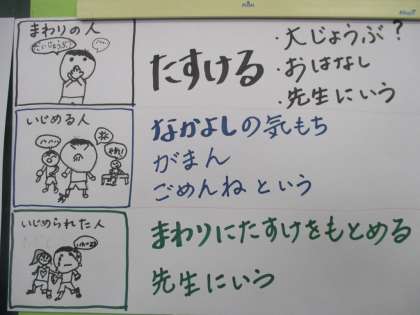 まわりの人
たすける
・大じょうぶ？
・おはなし
・先生にいう
いじめる人
なかよしの気もち
がまん
ごめんねという
いじめられた人
まわりにたすけをもとめる
先生にいう